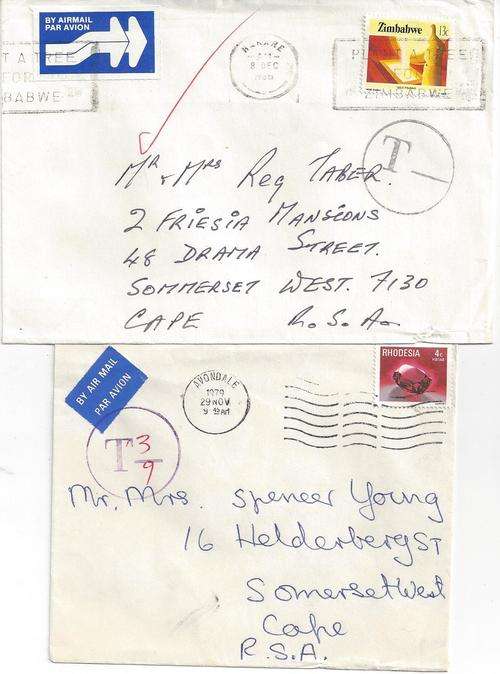 BY AIRMAIL
PAR AVION
T A TREE
FOR
BABWE
HARARE
8 DEC
Zimbabwe
13c
ZIMBABWE
T
Mr & Mrs Reg Taber.
2 Friesia Mansions
48 Drama Street.
Sommerset West. 7130
Cape R.S.A.
BY AIR MAIL
PAR AVION
AVONDALE
1979
29 NOV
9 AM
RHODESIA
4c
T 3/9
Mr. Mrs. Spencer Young
16 Helderberg ST
Somerset West
Cape
R.S.A.